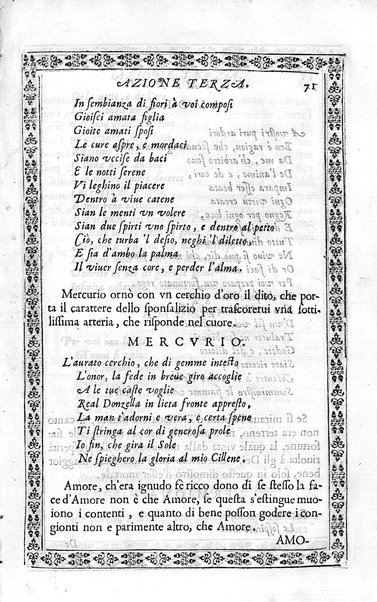 AZIONE TERZA. 71
In sembianza di fiori à voi composi
Gioisci amata figlia
Gioite amati sposi
Le cure aspre, e mordaci
Siano vccise da baci
E le notti serene
Vi leghino il piacere
Dentro à viue catene
Sian le menti vn volere
Sian due spirti vno spirto, e dentro al petto
Ciò, che turba 'l desio, neghi 'l diletto,
E sia d'ambo la palma
Il viuer senza core, e perder l'alma.
Mercurio ornò con vn cerchio d'oro il dito, che por-
ta il carattere dello sponsalizio per trascorerui vna sotti-
lissima arteria, che risponde nel cuore.
MERCVRIO.
L'aurato cerchio, che di gemme intesto
L'onor, la fede in breue giro accoglie
A le tue caste voglie
Real Donzella in lieta fronte appresto,
La man t'adorni e vera, e certa speno
Ti stringa al cor di generosa prole
Io fin, che gira il Sole
Ne spiegherò la gloria al mio Cillene.
Amore, ch'era ignudo fè ricco dono di se stesso la fa-
ce d'Amore non è che Amore, se questa s'estingue muo-
iono i contenti, e quanto di bene posson godere i con-
gionti non e parimente altro, che Amore.
AMO-